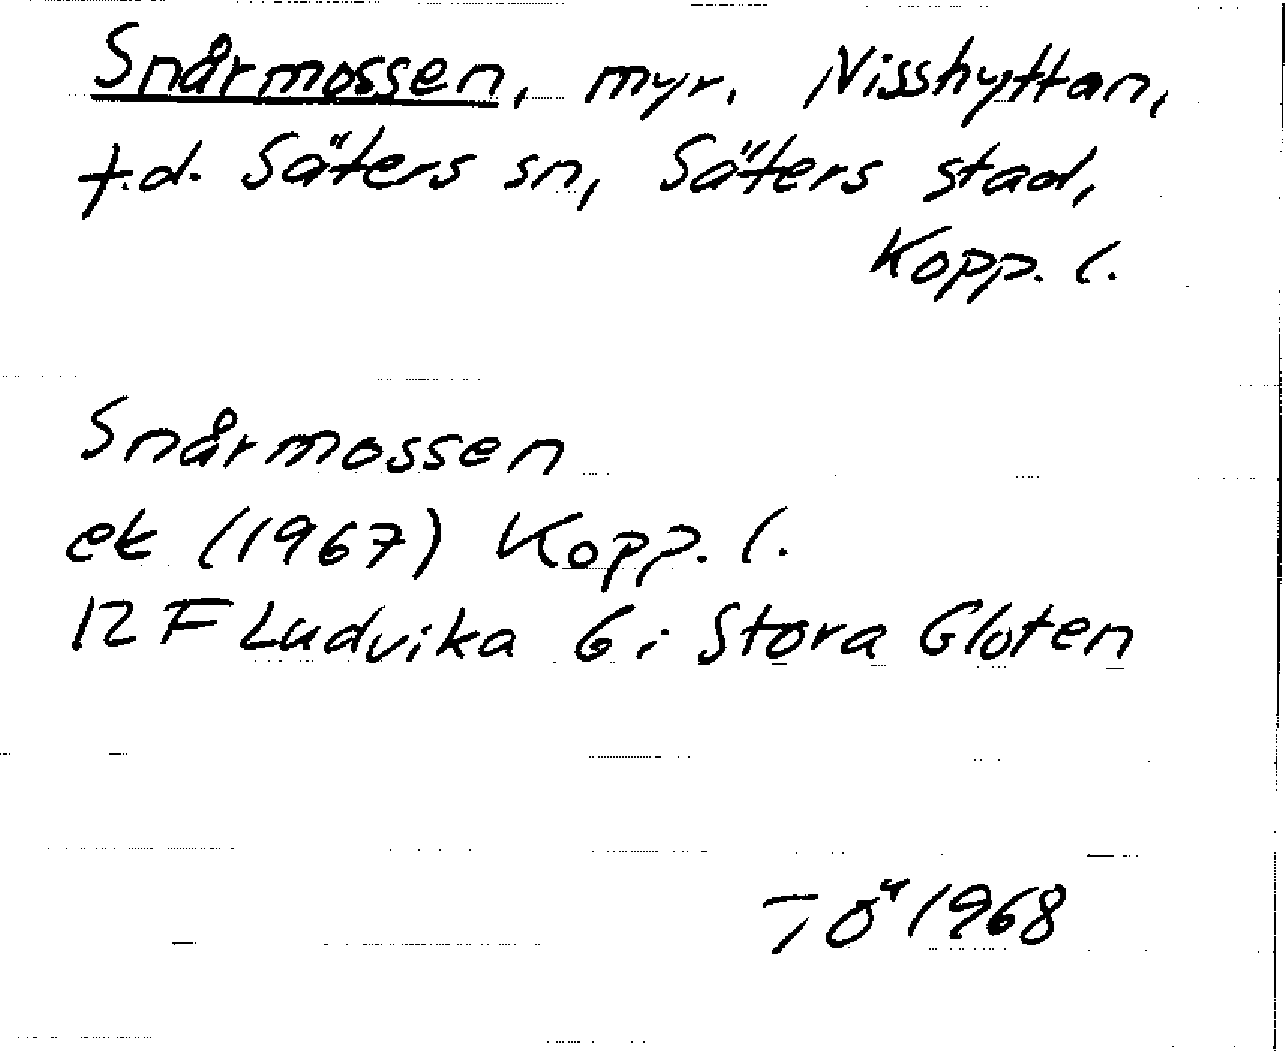 Snårmossen, myr. Nisshyttan,
f.d. Säters sn, Säters stad,
Kopp. l.
Snårmossen
ek (1967) Kopp. l.
12 F Ludvika 6 i Stora Gloten
TÖ 1968